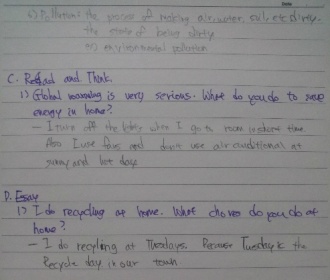 6) Pollution: the process of making air, water, soil, etc dirty.
the state of being dirty
ex) environmental pollution
C. Reread and Think.
1) Global warming is very serious. What do you do to save
energy in home?
- I turn off the lights when I go to room in short time.
Also I use fans and don't use air conditional at
sunny and hot days
D. Essay
1) I do recycling at home. What chores do you do at
home?
- I do recycling at Tuesdays. Because Tuesday is the
Recycle day in our town